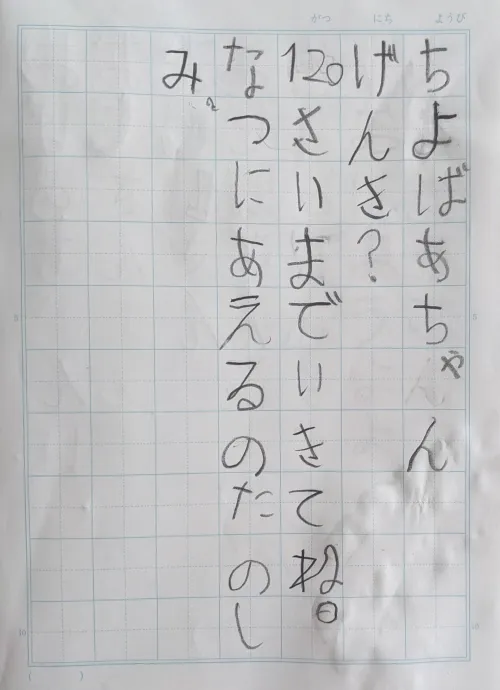 がつ にち ようび
ちよばあちゃん
げんき?
120さいまでいきてね。
なつにあえるのたのし
み